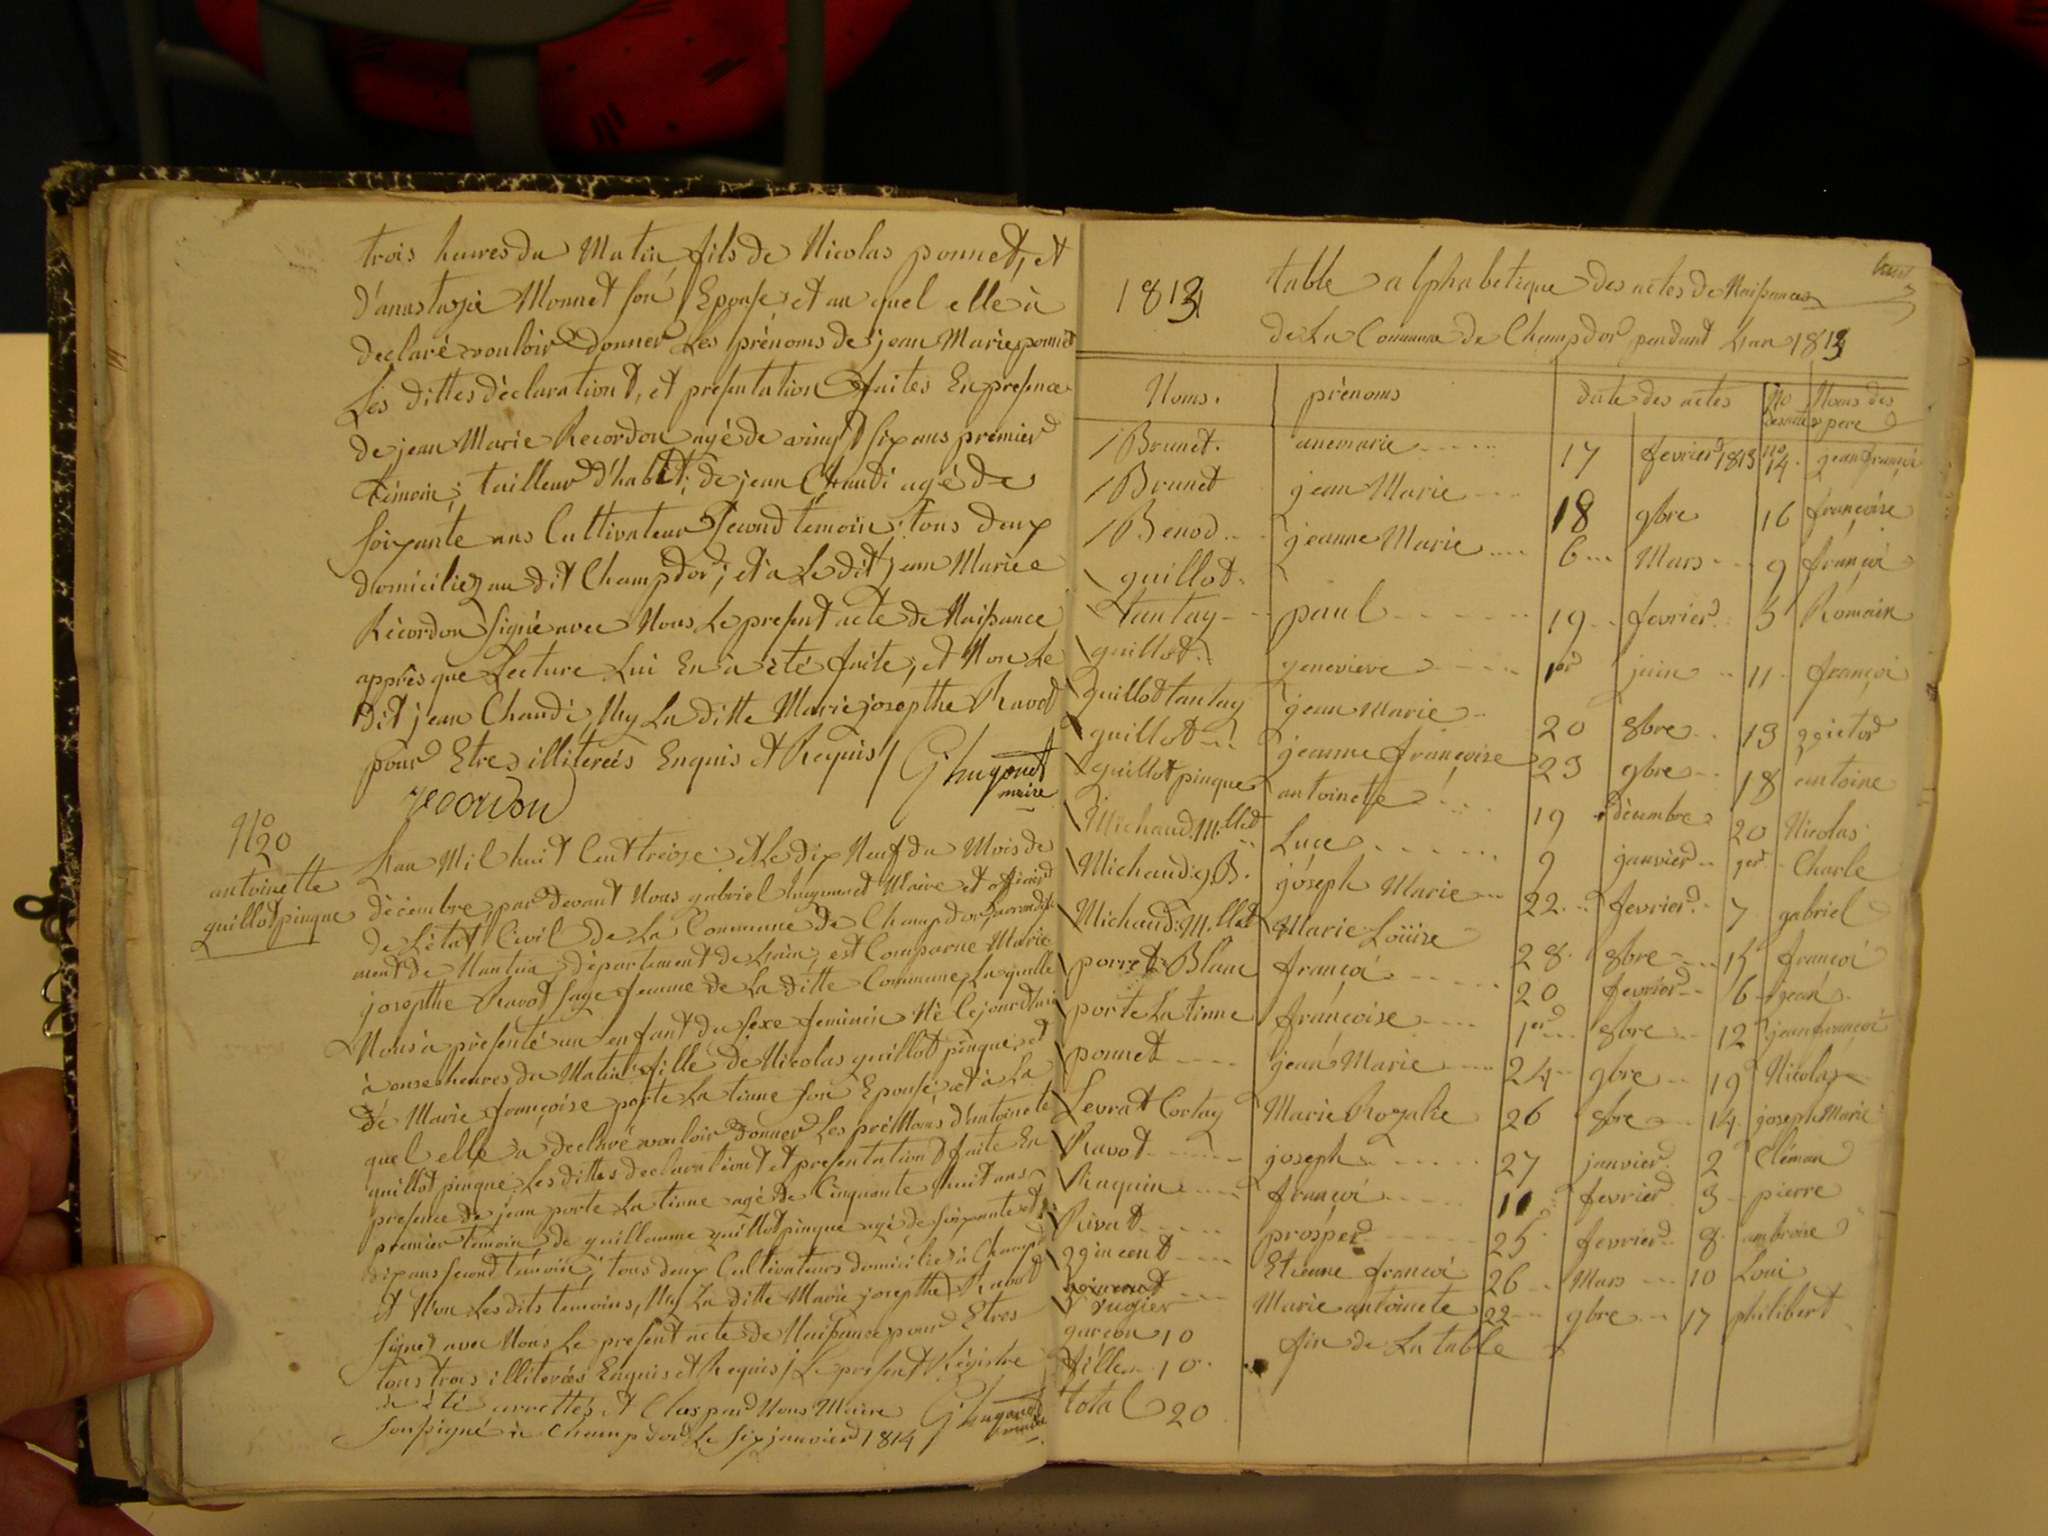 trois heures du Matin fils de Nicolas ponnet, et
d'anastasie Monnet son Epouse et au quel elle à
declaré vouloir donner Les prénoms de jean Marie ponnet
Les dittes déclarationt, et presentation faites En presence
de jean Marie Recordon agé de vingt six ans premier
témoin; tailleur d'habit; de jean Chaudi agé de
soixante ans Cultivateur second temoin; tous deux
domiciliez au dit Champdor; et a Le dit jean Marie
Récordon signé avec Nous Le present acte de Naissance
apprès que Lecture Lui En à été faite, et Non Le
dit jean Chaudi, Ny La ditte Marie josepthe Ravot
pour Etres illiterés Enquis et Requis /. G hugonet
recordon maire
No
20
antoinette
guillot pinque
L'an Mil huit Cent treize et Le dix Neuf du Mois de
décembre, par devant Nous gabriel hugonnet Maire et officier
de L'état Civil de La Commune de Champdor, arrondisse
ment de Nantua, département de L'ain, est Comparue Marie
josepthe Ravot sage femme de La ditte Commune, La quelle
Nous à présenté un enfant du sexe feminin Né Cejourdhui
à onse heures du Matin fille de Nicolas guillot pinque, et
de Marie françoise porte La tinne son Epouse, et à La
quel elle a declaré vouloir donner Les préNoms d'antoinete
guillot pinque Les dittes declarationt et presentation faite En
presence de jean porte La tinne agé de Cinquante huit ans
premier temoin de guillaume guillot pinque agé de soixante et
dix ans second temoin; tous deux Cultivateurs domicilié à Champd
et Non Les dits temoins, Ny La ditte Marie josepthe Ravot
signer avec Nous Le present acte de Naissance pour Etres
tous trois illiterés Enquis et Requis / Le present Régistre
à été arrettés et Clos par Nous Maire
soussigné à Champdor Le six janvier 1814 G hugonet
maire
1813 table alphabetique des actes de Naissances
de La Commune de Champdor pendant L'an 1813
Noms. prénoms date des actes No des actes Noms des pere
Brunet. anemarie 17 fevrier 1813 no 14. jean françoi
Brunet jean Marie 18 9bre 16 françoise
Benod jeanne Marie 6 Mars 9 françoi
guillot
tantay paul 19 fevrier 5 Romain
guillot genevieve 1er juin 11 françoi
guillot tantay jean Marie 20 8bre 13 victor
guillot jeanne françoise 23 9bre 18 antoine
guillot pinque antoinete 19 décembre 20 Nicolas
Michaud Millet Luce 9 janvier 1er Charle
Michaud g.B. joseph Marie 22 fevrier 7 gabriel
Michaud Millet Marie Loüise 28 8bre 15 françoi
porret Blanc françoi 20 fevrier 6 jean
porte La tinne françoise 1er 8bre 12 jean françoi
ponnet jean Marie 24 9bre 19 Nicolas
Levrat Cortay Marie Rozalie 26 8bre 14 joseph Marie
Ravot joseph 27 janvier 2 Cléman
Raquin françoi 10 fevrier 3 pierre
Rivat prosper 25 fevrier 8 ambroise
vincent Etienne françoi 26 Mars 10 Loui
rugier Marie antoinete 22 9bre 17 philibert
garcon 10 fin de La table
fille 10
total 20